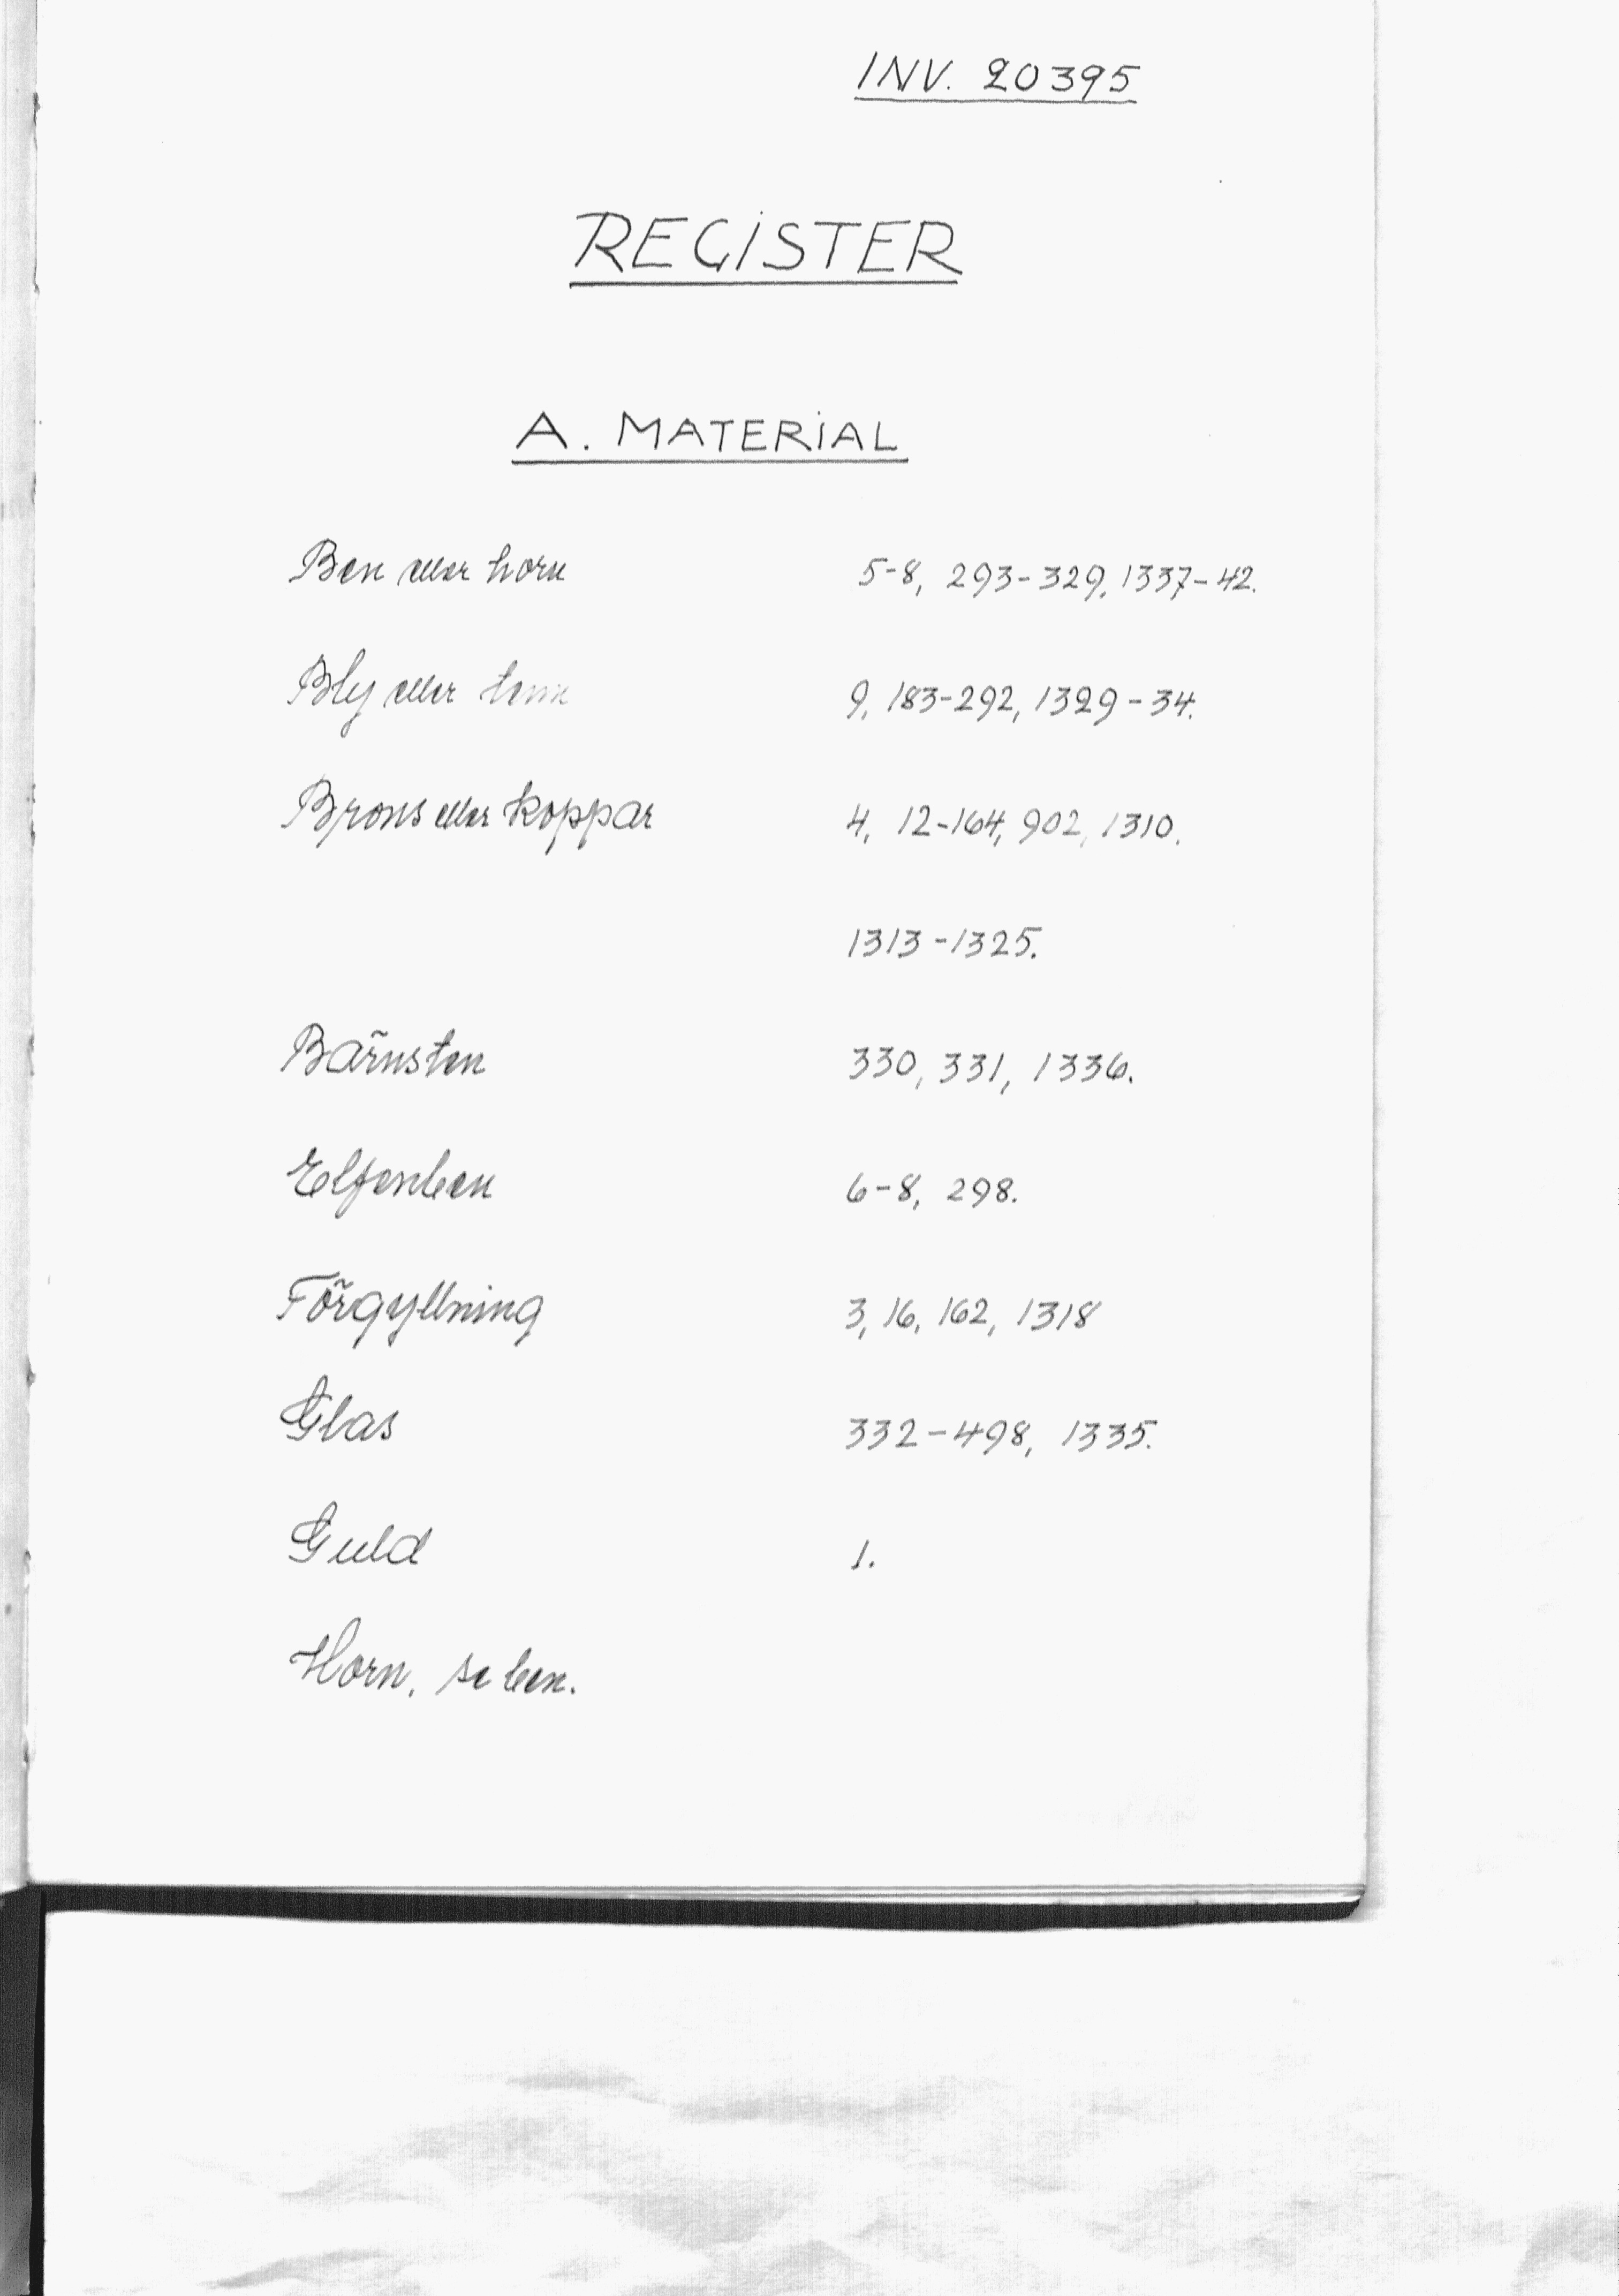 INV. 20395
REGISTER
A. MATERIAL
Ben eller horn 5-8, 293-329, 1337-42.
Bly eller tenn 9, 183-292, 1329-34.
Brons eller koppar 4, 12-164, 902, 1310.
1313-1325.
Bärnsten 330, 331, 1336.
Elfenben 6-8, 298.
Förgyllning 3, 16, 162, 1318
Glas 332-498, 1335.
Guld 1.
Horn, se ben.